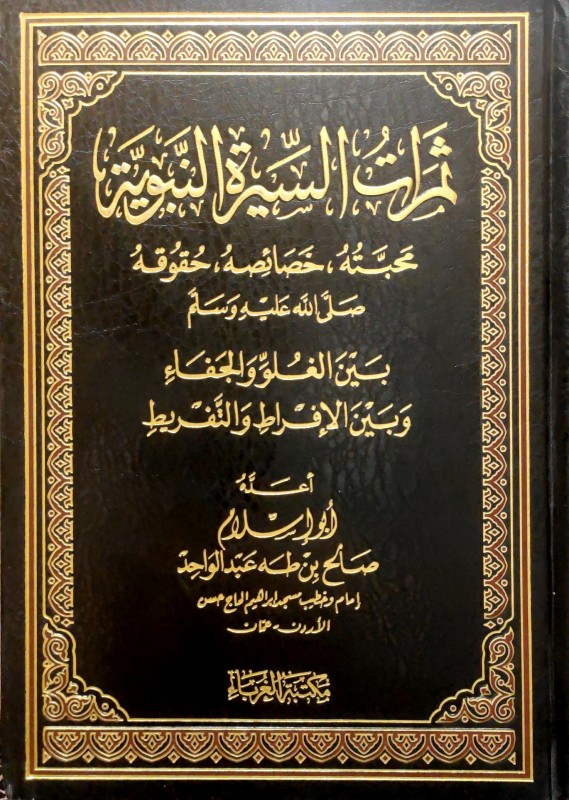 ثَمَرَاتُ السِّيرَةِ النَّبَوِيَّةِ
مَحَبَّتُهُ، خَصَائِصُهُ، حُقُوقُهُ
صَلَّى اللهُ عَلَيْهِ وَسَلَّمَ
بَيْنَ الغُلُوِّ وَالجَفَاءِ
وَبَيْنَ الإِفْرَاطِ وَالتَّفْرِيطِ
أَعَدَّهُ
أَبُو إِسْلَام
صَالِح بْنُ طَهَ عَبْدُ الوَاحِدْ
إمام وخطيب مسجد ابراهيم الحاج حسن
الأردن - عمّان
مكتبة الغرباء